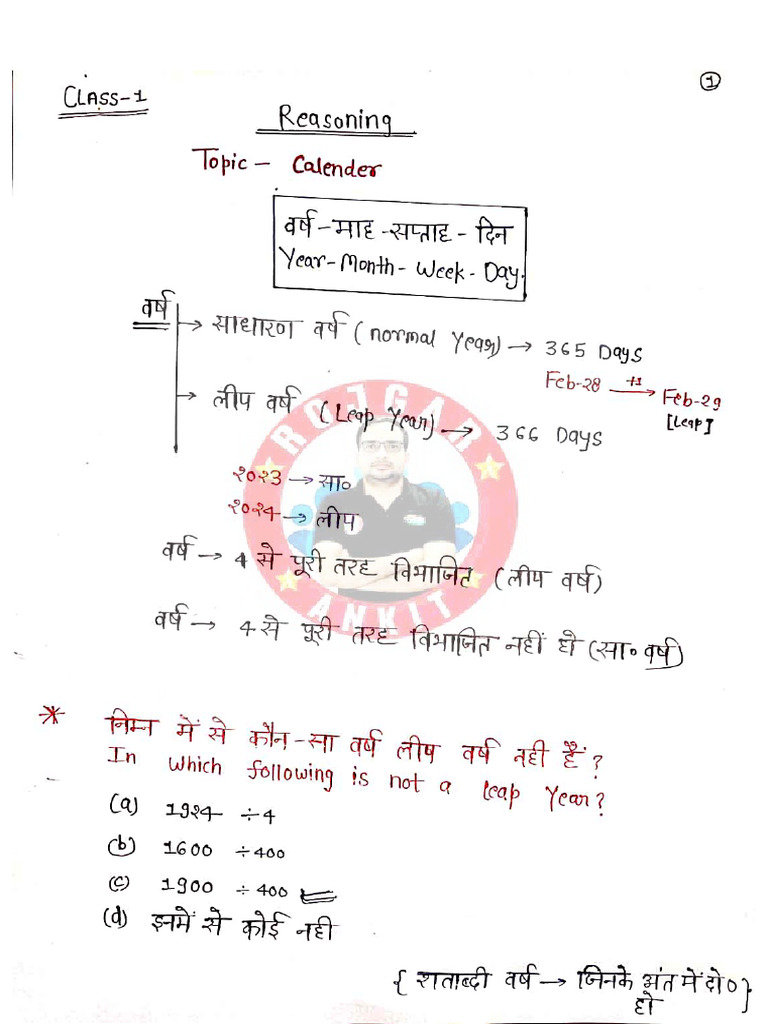 ①
CLASS-1
Reasoning
Topic - Calender
वर्ष - माह - सप्ताह - दिन
Year - Month - Week - Day.
वर्ष
→ साधारण वर्ष (normal Year) → 365 Days
Feb-28 +1→ Feb-29
[Leap]
→ लीप वर्ष (Leap Year) → 366 Days
ROJGAR
२०२३ → सा०
२०२४ → लीप
वर्ष → 4 से पूरी तरह विभाजित (लीप वर्ष)
ANKIT
वर्ष → 4 से पूरी तरह विभाजित नहीं हो (सा० वर्ष)
* निम्न में से कौन-सा वर्ष लीप वर्ष नही हैं?
In which following is not a leap Year?
(a) 1924 ÷4
(b) 1600 ÷400
(c) 1900 ÷400
(d) इनमें से कोई नही
{ शताब्दी वर्ष → जिनके अंत में दो ०}
हो